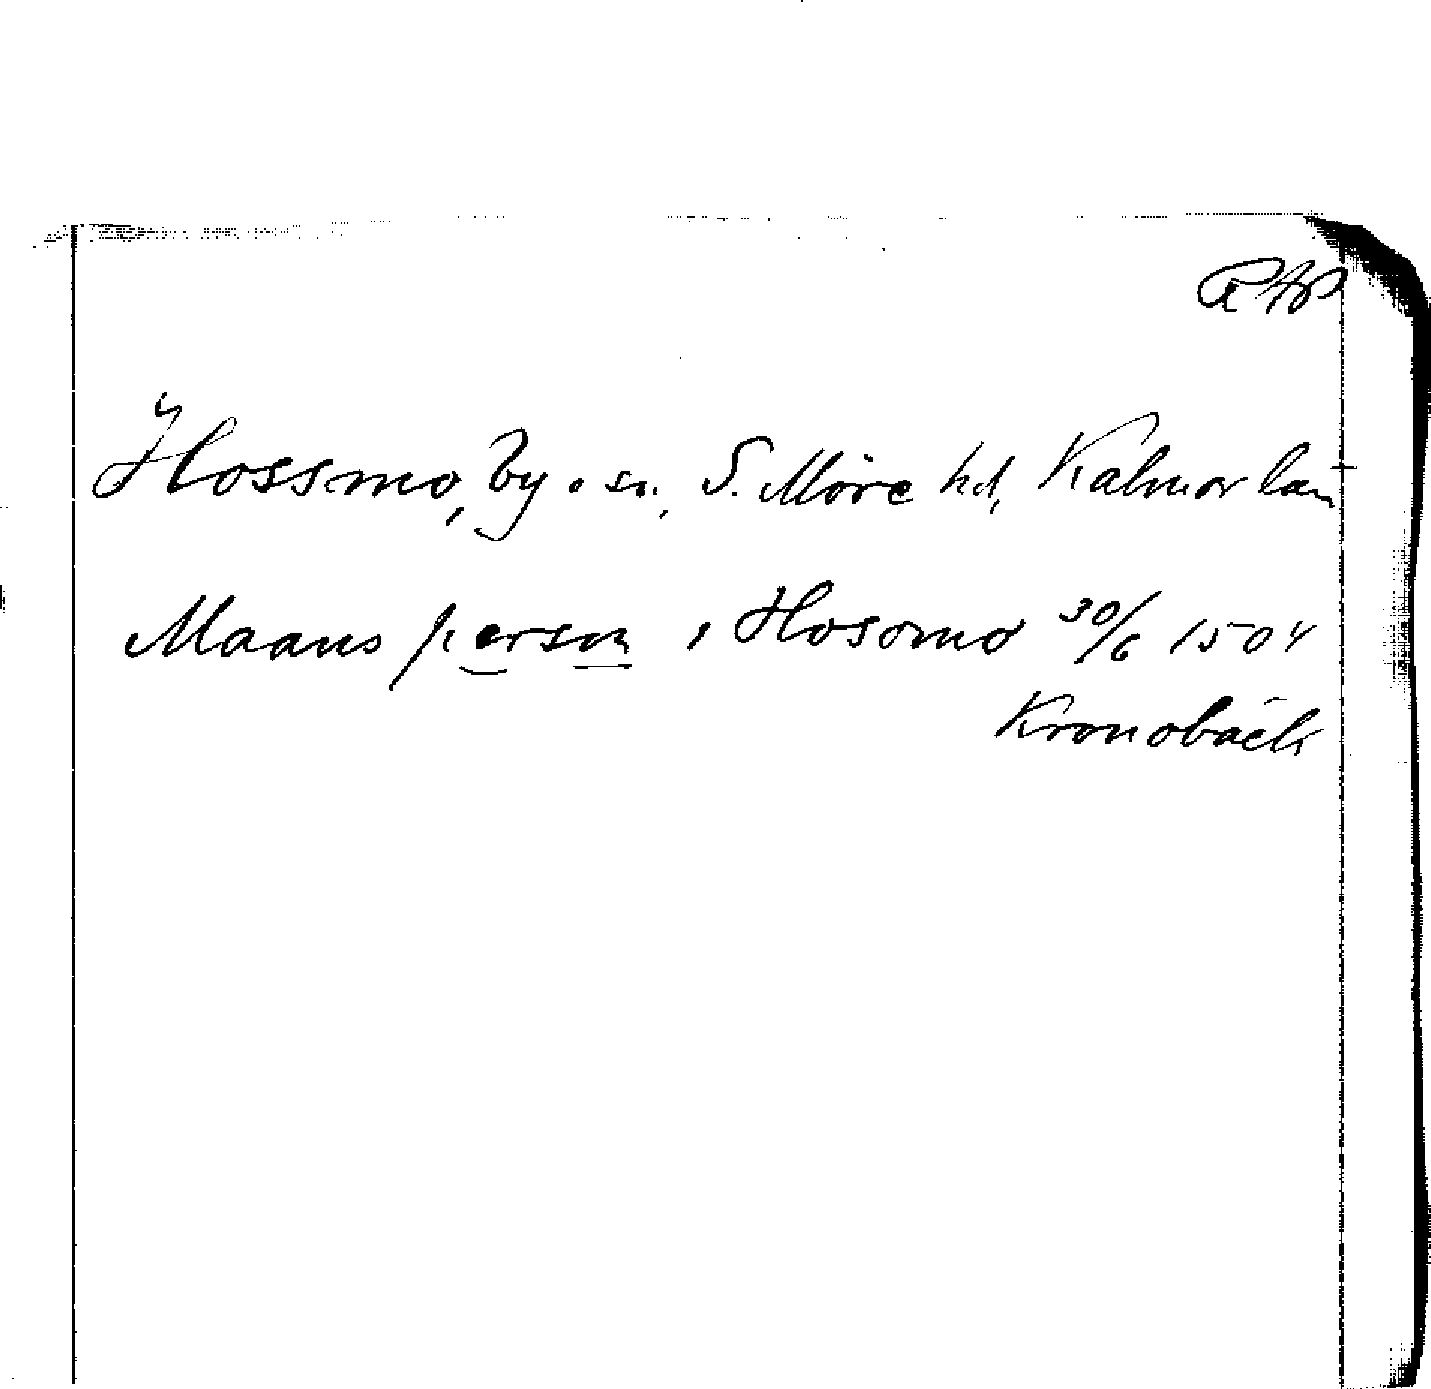 RAP
Hossmo, by o sn, S. Möre hd, Kalmar län
Maans person i Hosomo 30/6 1504
Kronobäck